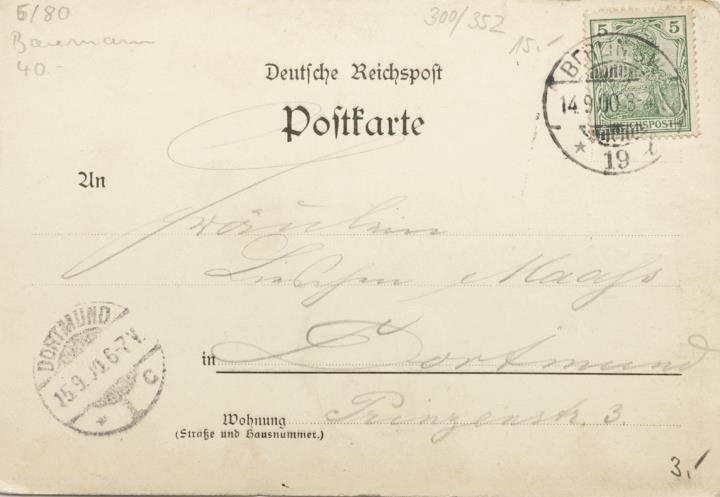 6/80
300/352
15.-
Baumann
40.-
Deutsche Reichspost
Postkarte
5 5
REICHSPOST
BERLIN S.W.
14.9.00. 3-4
* 19
An
Fräulein
Lieschen Maaß
in Dortmund
Wohnung Prinzenstr. 3.
(Straße und Hausnummer.)
DORTMUND
15.9.00. 6-7 V.
* 1 c
3,-